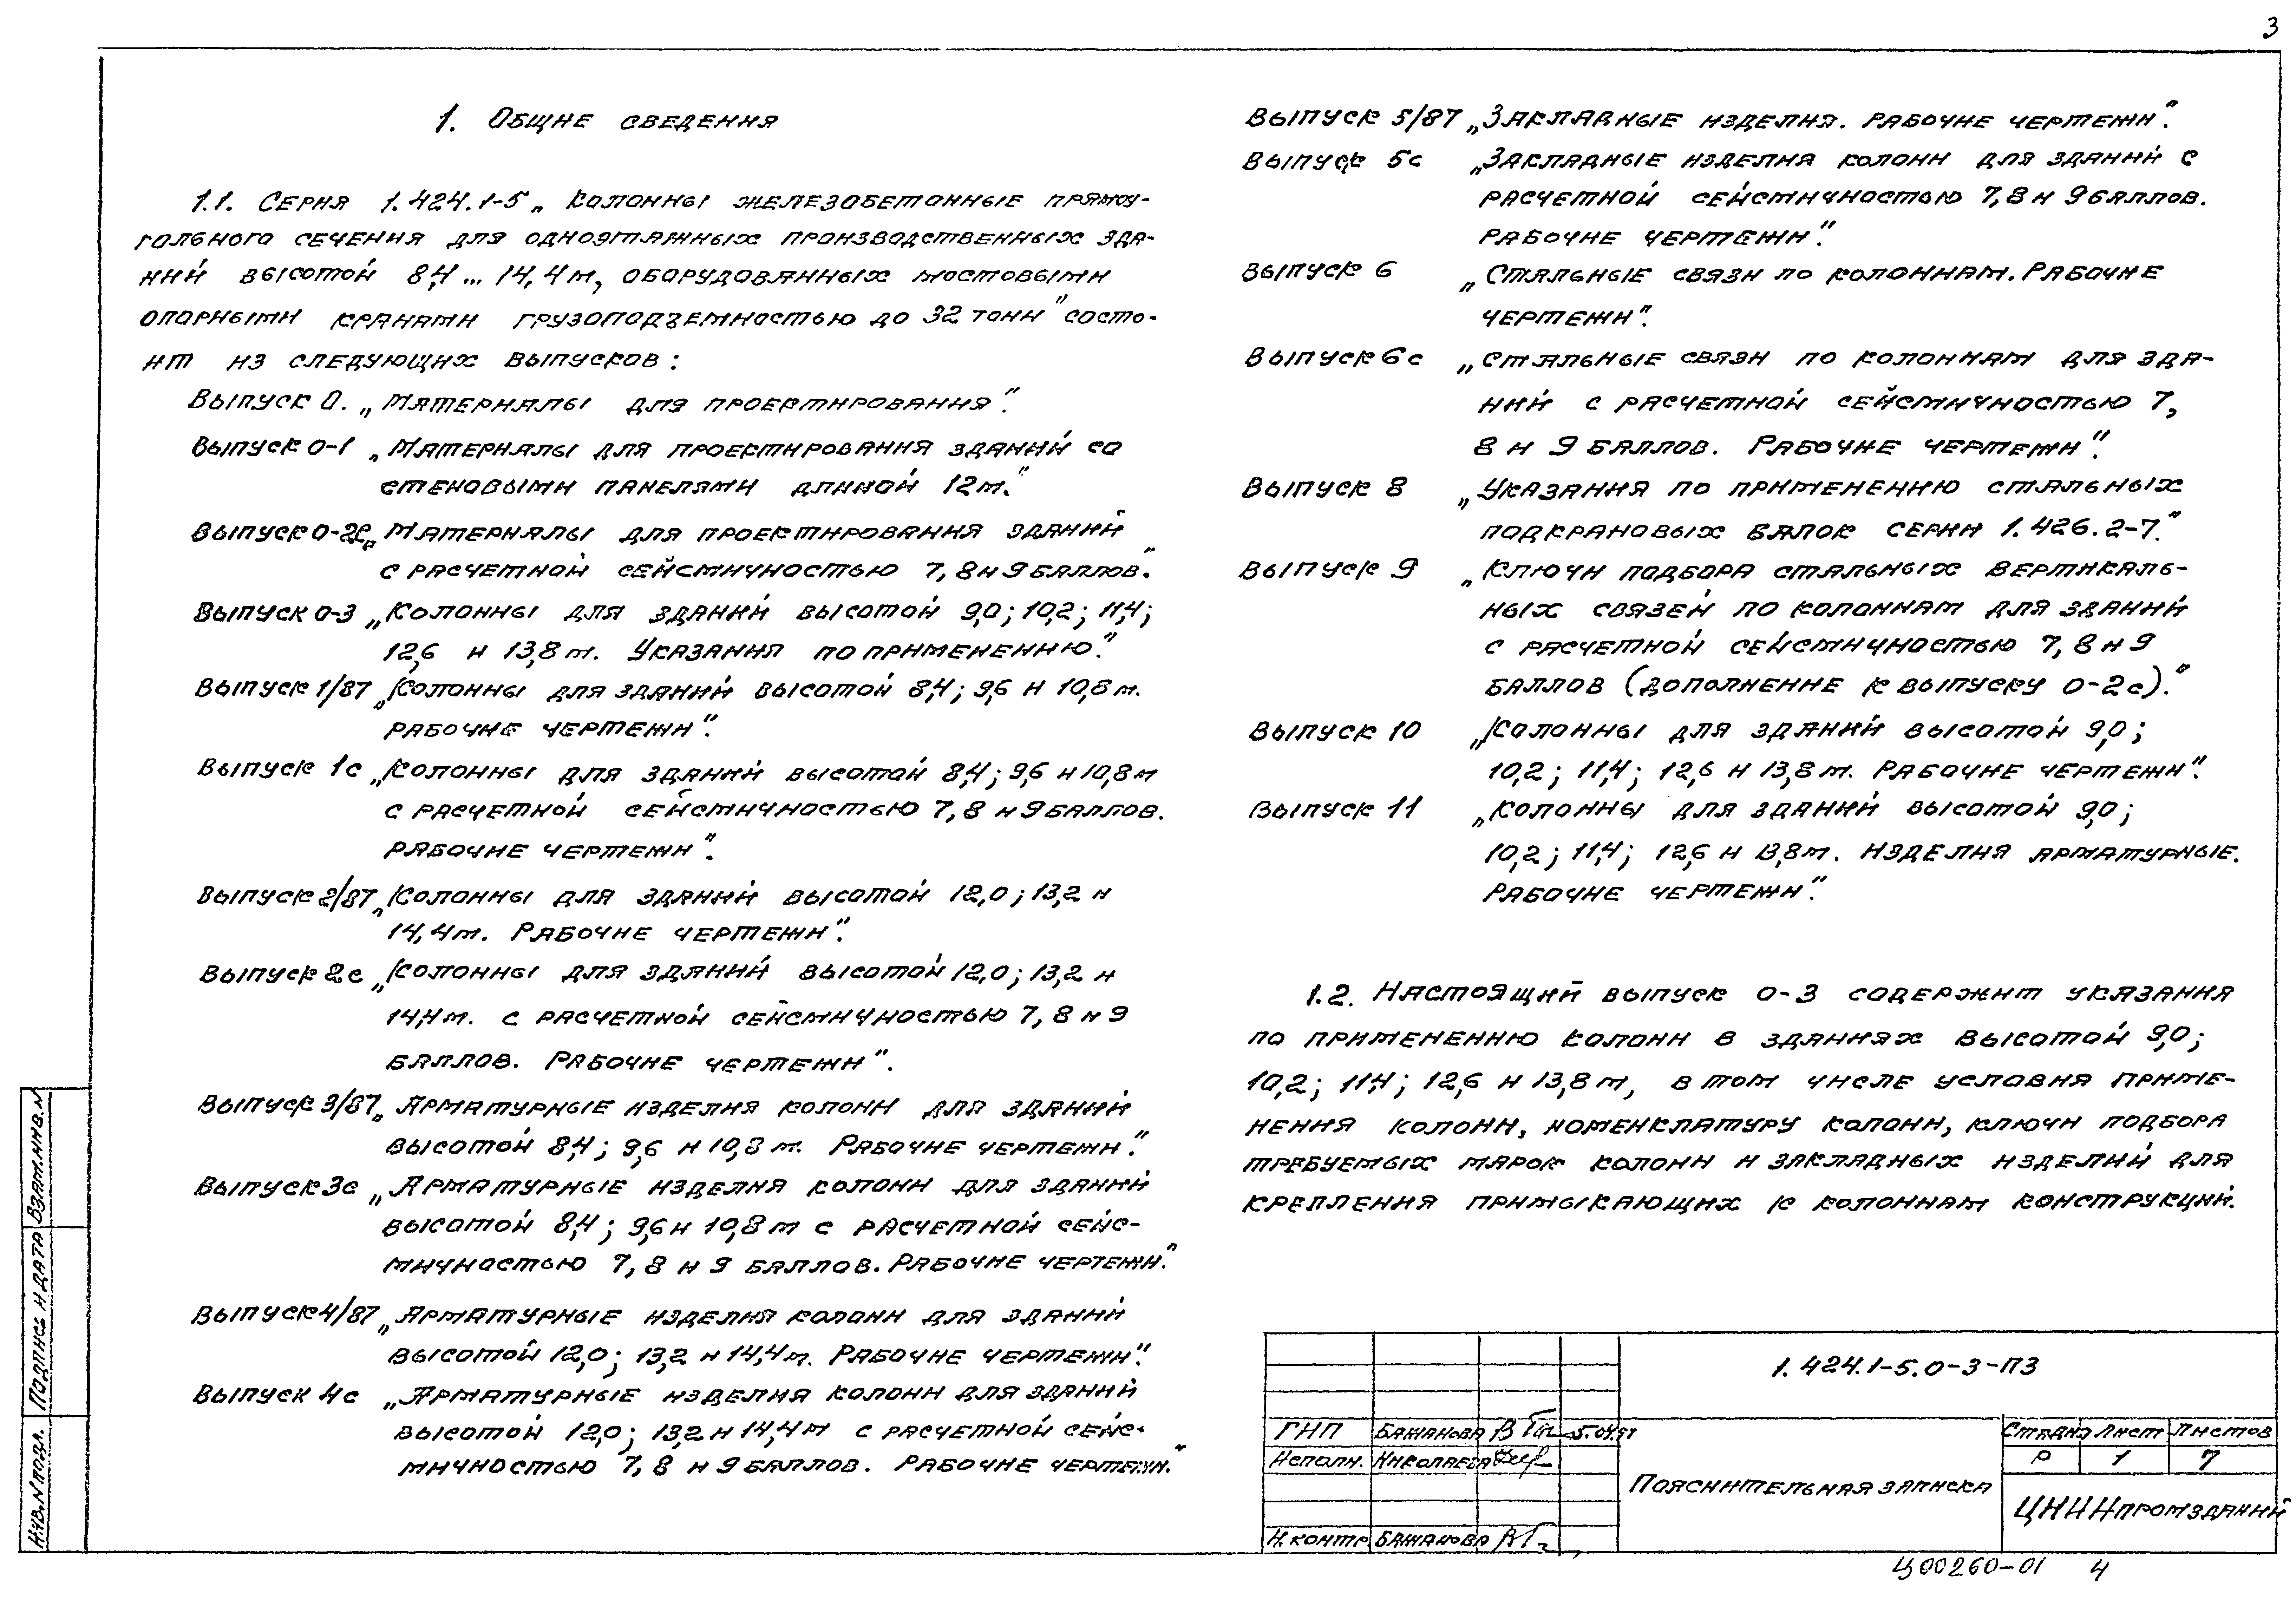 3
1. Общие сведения
1.1. Серия 1.424.1-5 „Колонны железобетонные прямоу-
гольного сечения для одноэтажных производственных зда-
ний высотой 8,4 ... 14,4 м, оборудованных мостовыми
опорными кранами грузоподъемностью до 32 тонн" состо-
ит из следующих выпусков:
Выпуск 0. „Материалы для проектирования".
Выпуск 0-1 „Материалы для проектирования зданий со
стеновыми панелями длиной 12 м."
Выпуск 0-2с „Материалы для проектирования зданий
с расчетной сейсмичностью 7, 8 и 9 баллов."
Выпуск 0-3 „Колонны для зданий высотой 9,0; 10,2; 11,4;
12,6 и 13,8 м. Указания по применению."
Выпуск 1/87 „Колонны для зданий высотой 8,4; 9,6 и 10,8 м.
Рабочие чертежи".
Выпуск 1с „Колонны для зданий высотой 8,4; 9,6 и 10,8 м
с расчетной сейсмичностью 7, 8 и 9 баллов.
Рабочие чертежи".
Выпуск 2/87 „Колонны для зданий высотой 12,0; 13,2 и
14,4 м. Рабочие чертежи".
Выпуск 2с „Колонны для зданий высотой 12,0; 13,2 и
14,4 м. с расчетной сейсмичностью 7, 8 и 9
баллов. Рабочие чертежи".
Выпуск 3/87 „Арматурные изделия колонн для зданий
высотой 8,4; 9,6 и 10,8 м. Рабочие чертежи".
Выпуск 3с „Арматурные изделия колонн для зданий
высотой 8,4; 9,6 и 10,8 м с расчетной сейс-
мичностью 7, 8 и 9 баллов. Рабочие чертежи."
Выпуск 4/87 „Арматурные изделия колонн для зданий
высотой 12,0; 13,2 и 14,4 м. Рабочие чертежи".
Выпуск 4с „Арматурные изделия колонн для зданий
высотой 12,0; 13,2 и 14,4 м с расчетной сейс-
мичностью 7, 8 и 9 баллов. Рабочие чертежи."
Выпуск 5/87 „Закладные изделия. Рабочие чертежи".
Выпуск 5с „Закладные изделия колонн для зданий с
расчетной сейсмичностью 7, 8 и 9 баллов.
Рабочие чертежи".
Выпуск 6 „Стальные связи по колоннам. Рабочие
чертежи".
Выпуск 6с „Стальные связи по колоннам для зда-
ний с расчетной сейсмичностью 7,
8 и 9 баллов. Рабочие чертежи".
Выпуск 8 „Указания по применению стальных
подкрановых балок серии 1.426.2-7."
Выпуск 9 „Ключи подбора стальных вертикаль-
ных связей по колоннам для зданий
с расчетной сейсмичностью 7, 8 и 9
баллов (дополнение к выпуску 0-2с)."
Выпуск 10 „Колонны для зданий высотой 9,0;
10,2; 11,4; 12,6 и 13,8 м. Рабочие чертежи".
Выпуск 11 „Колонны для зданий высотой 9,0;
10,2; 11,4; 12,6 и 13,8 м. Изделия арматурные.
Рабочие чертежи".
1.2. Настоящий выпуск 0-3 содержит указания
по применению колонн в зданиях высотой 9,0;
10,2; 11,4; 12,6 и 13,8 м, в том числе условия приме-
нения колонн, номенклатуру колонн, ключи подбора
требуемых марок колонн и закладных изделий для
крепления примыкающих к колоннам конструкций.
Взам.инв.№
Подпись и дата
Инв.№ подл.
1.424.1-5.0-3-ПЗ
ГИП Бажанова
Исполн. Николаева
Н.контр Бажанова
Пояснительная записка
Стадия Лист Листов
Р 1 7
ЦНИИпромзданий
Ц00260-01 4